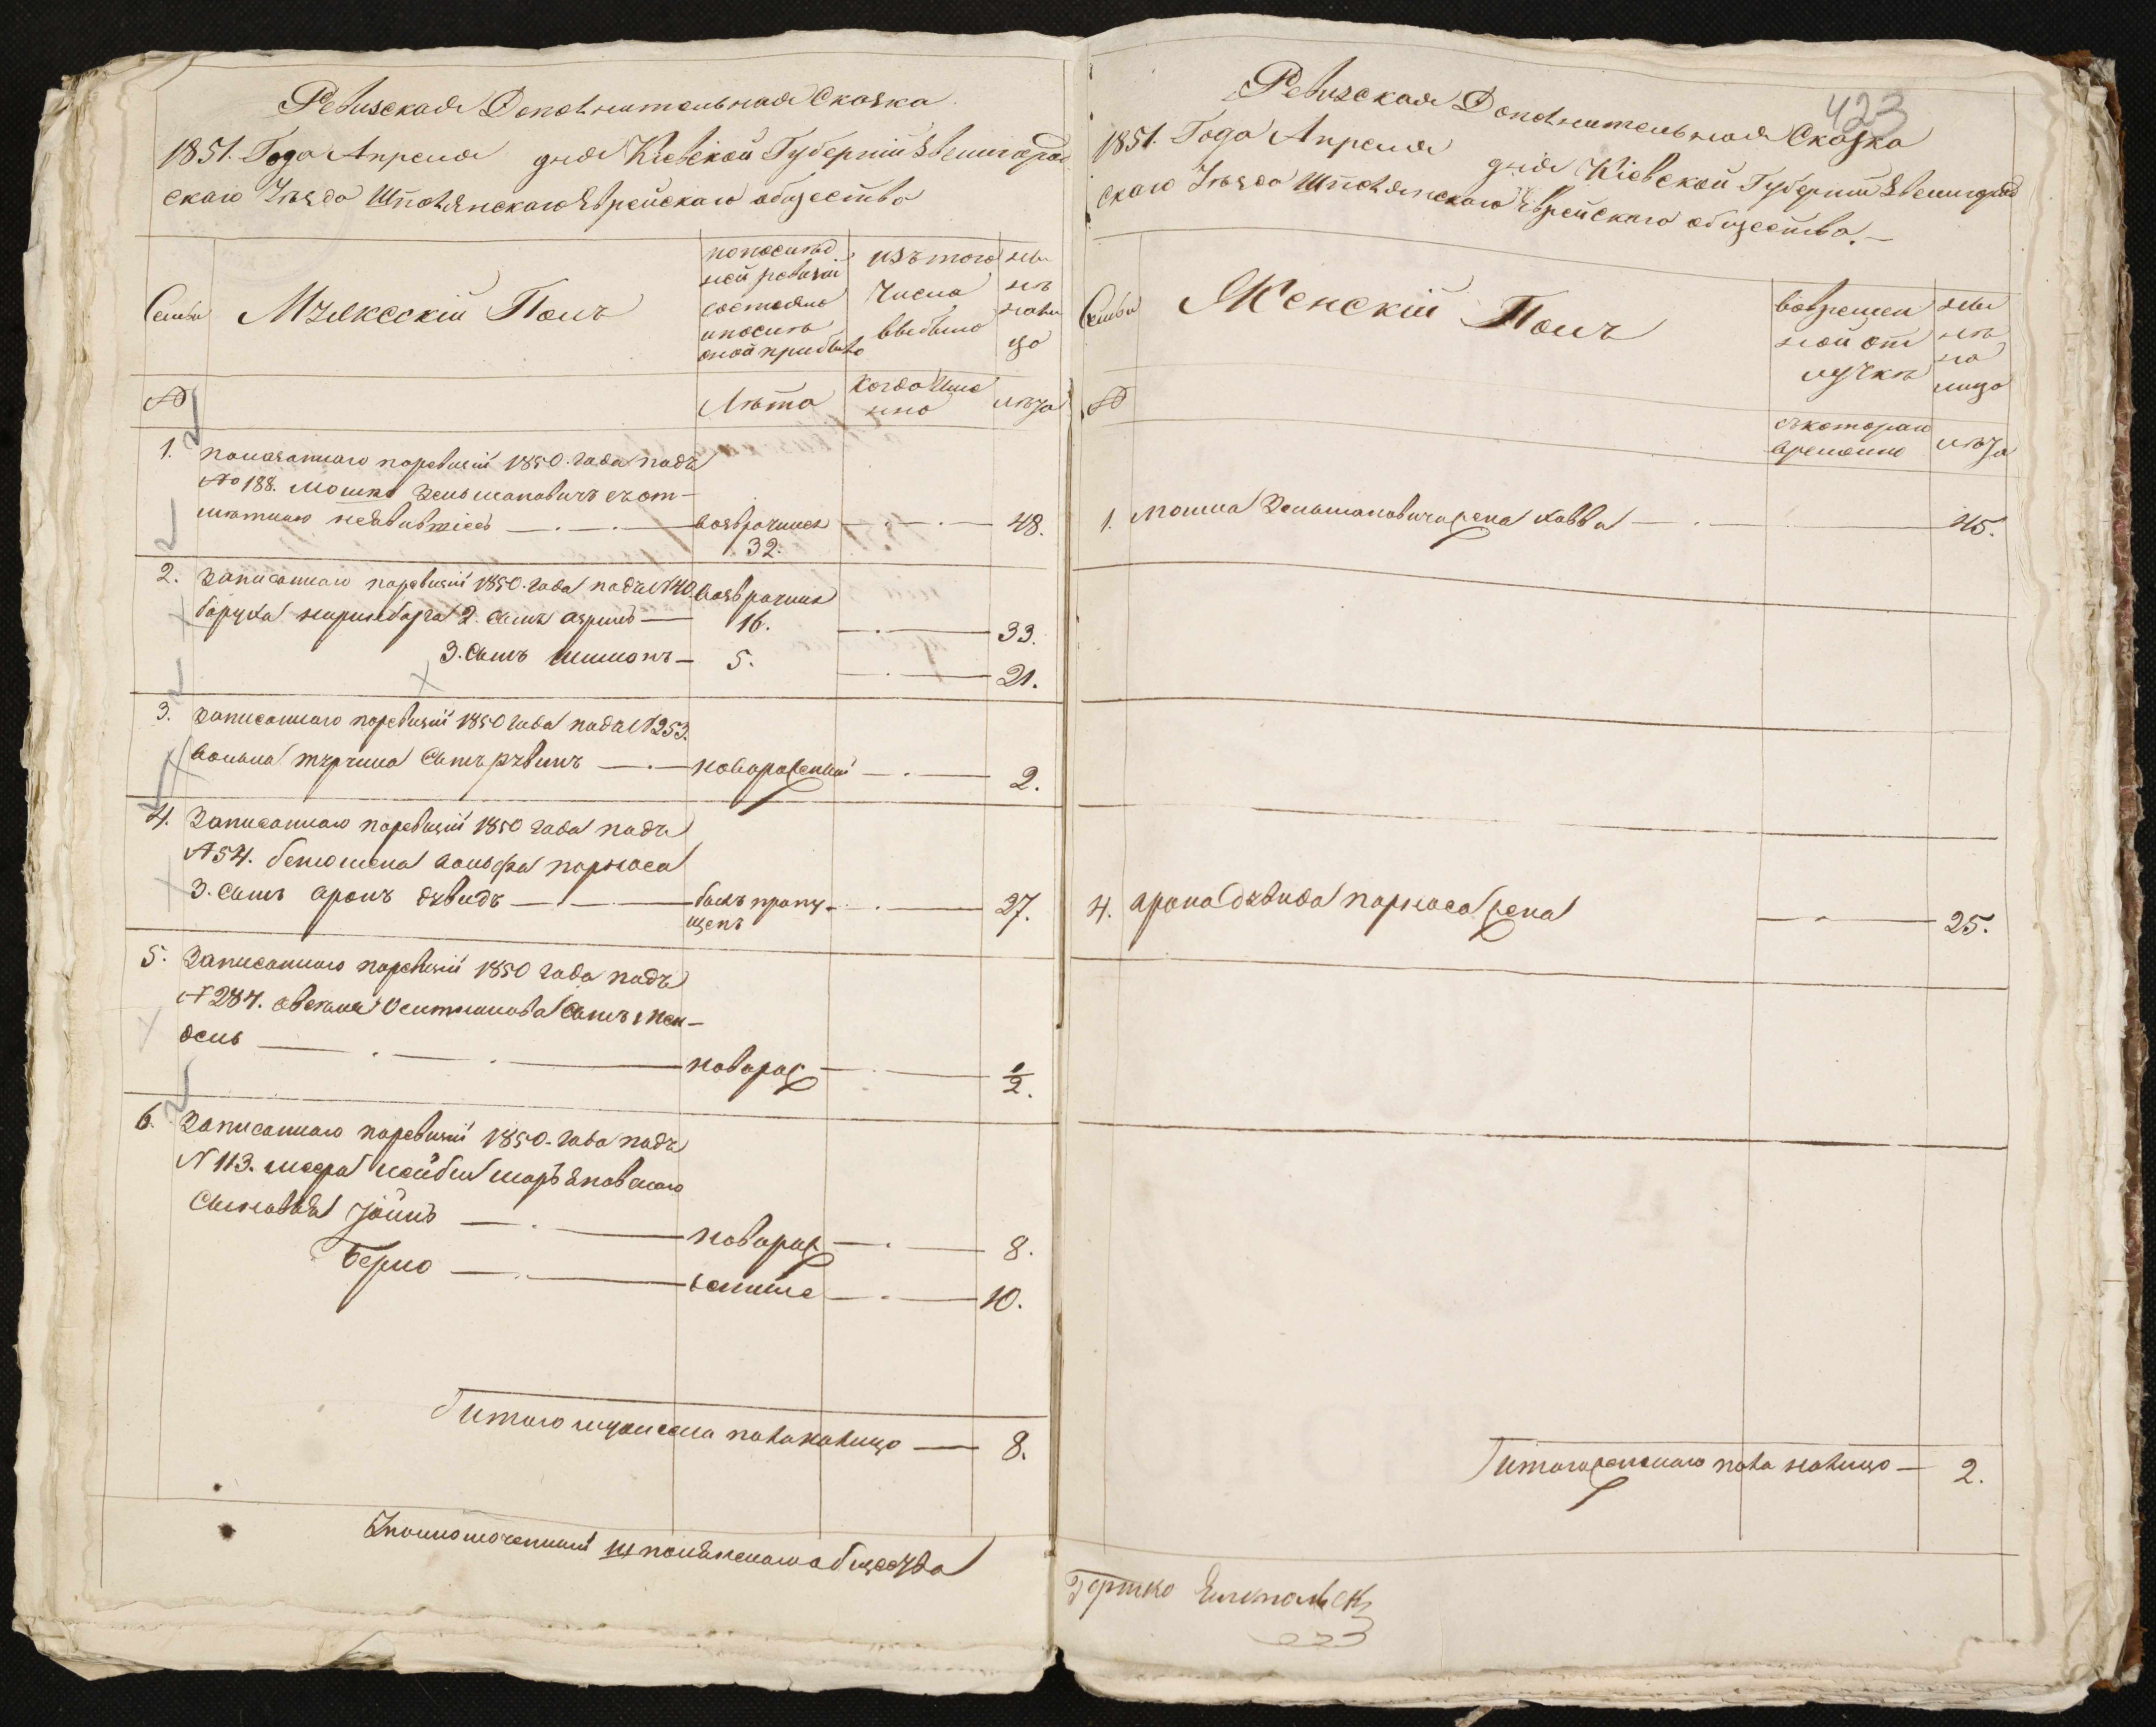 Ревизская Дополнительная Сказка
1851. Года Апреля дня Кіевской Губерніи Звенигород
скаго Уѣзда Шполянскаго Еврейскаго общества
Семьи
Мужескій Полъ
по послѣд
ней ревизіи
состояло
и послѣ
оной прибыло
изъ того
числа
выбыло
ны
нѣ
на ли
цо
№
Лѣта
когда име
нно
лѣта
1. показаннаго по ревизіи 1850. года подъ
№ 188. Мошко Зельмановичъ съ от-
лѣтнаго неявившись возврочился 48.
32.
2. Записаннаго по ревизіи 1850. года подъ №40. возврочился
боруха 2. сынъ 16. 33.
3. сынъ шимонъ 5. 21.
3. Записаннаго по ревизіи 1850 года подъ №253.
сынъ рувинъ новорожденный 2.
4. Записаннаго по ревизіи 1850 года подъ
№54. беньомена вольфа порноса
3. сынъ аронъ дувидъ былъ пропу- 27.
щенъ
5. Записаннаго по ревизіи 1850 года подъ
№ 284. сынъ
новорож 1/2.
6. Записаннаго по ревизіи 1850. года подъ
N 113. меера лейбы
сыновья новорож 8.
Берко 10.
Итого мужескаго пола налицо 8.
Уполномоченный шполянскаго общества
423
Ревизская Дополнительная Сказка
1851. Года Апреля дня Кіевской Губерніи Звенигород
скаго Уѣзда Шполянскаго Еврейскаго общества.
Семьи
Женскій Полъ
во времен
ной от
лучкѣ
ны
нѣ
на
лицо
№
съ котораго
времени
лѣта
1. Мошка Зельмановича жена Хавва 45.
4. арона дувида порноса жена 25.
Итого женскаго пола налицо 2.
Гершко